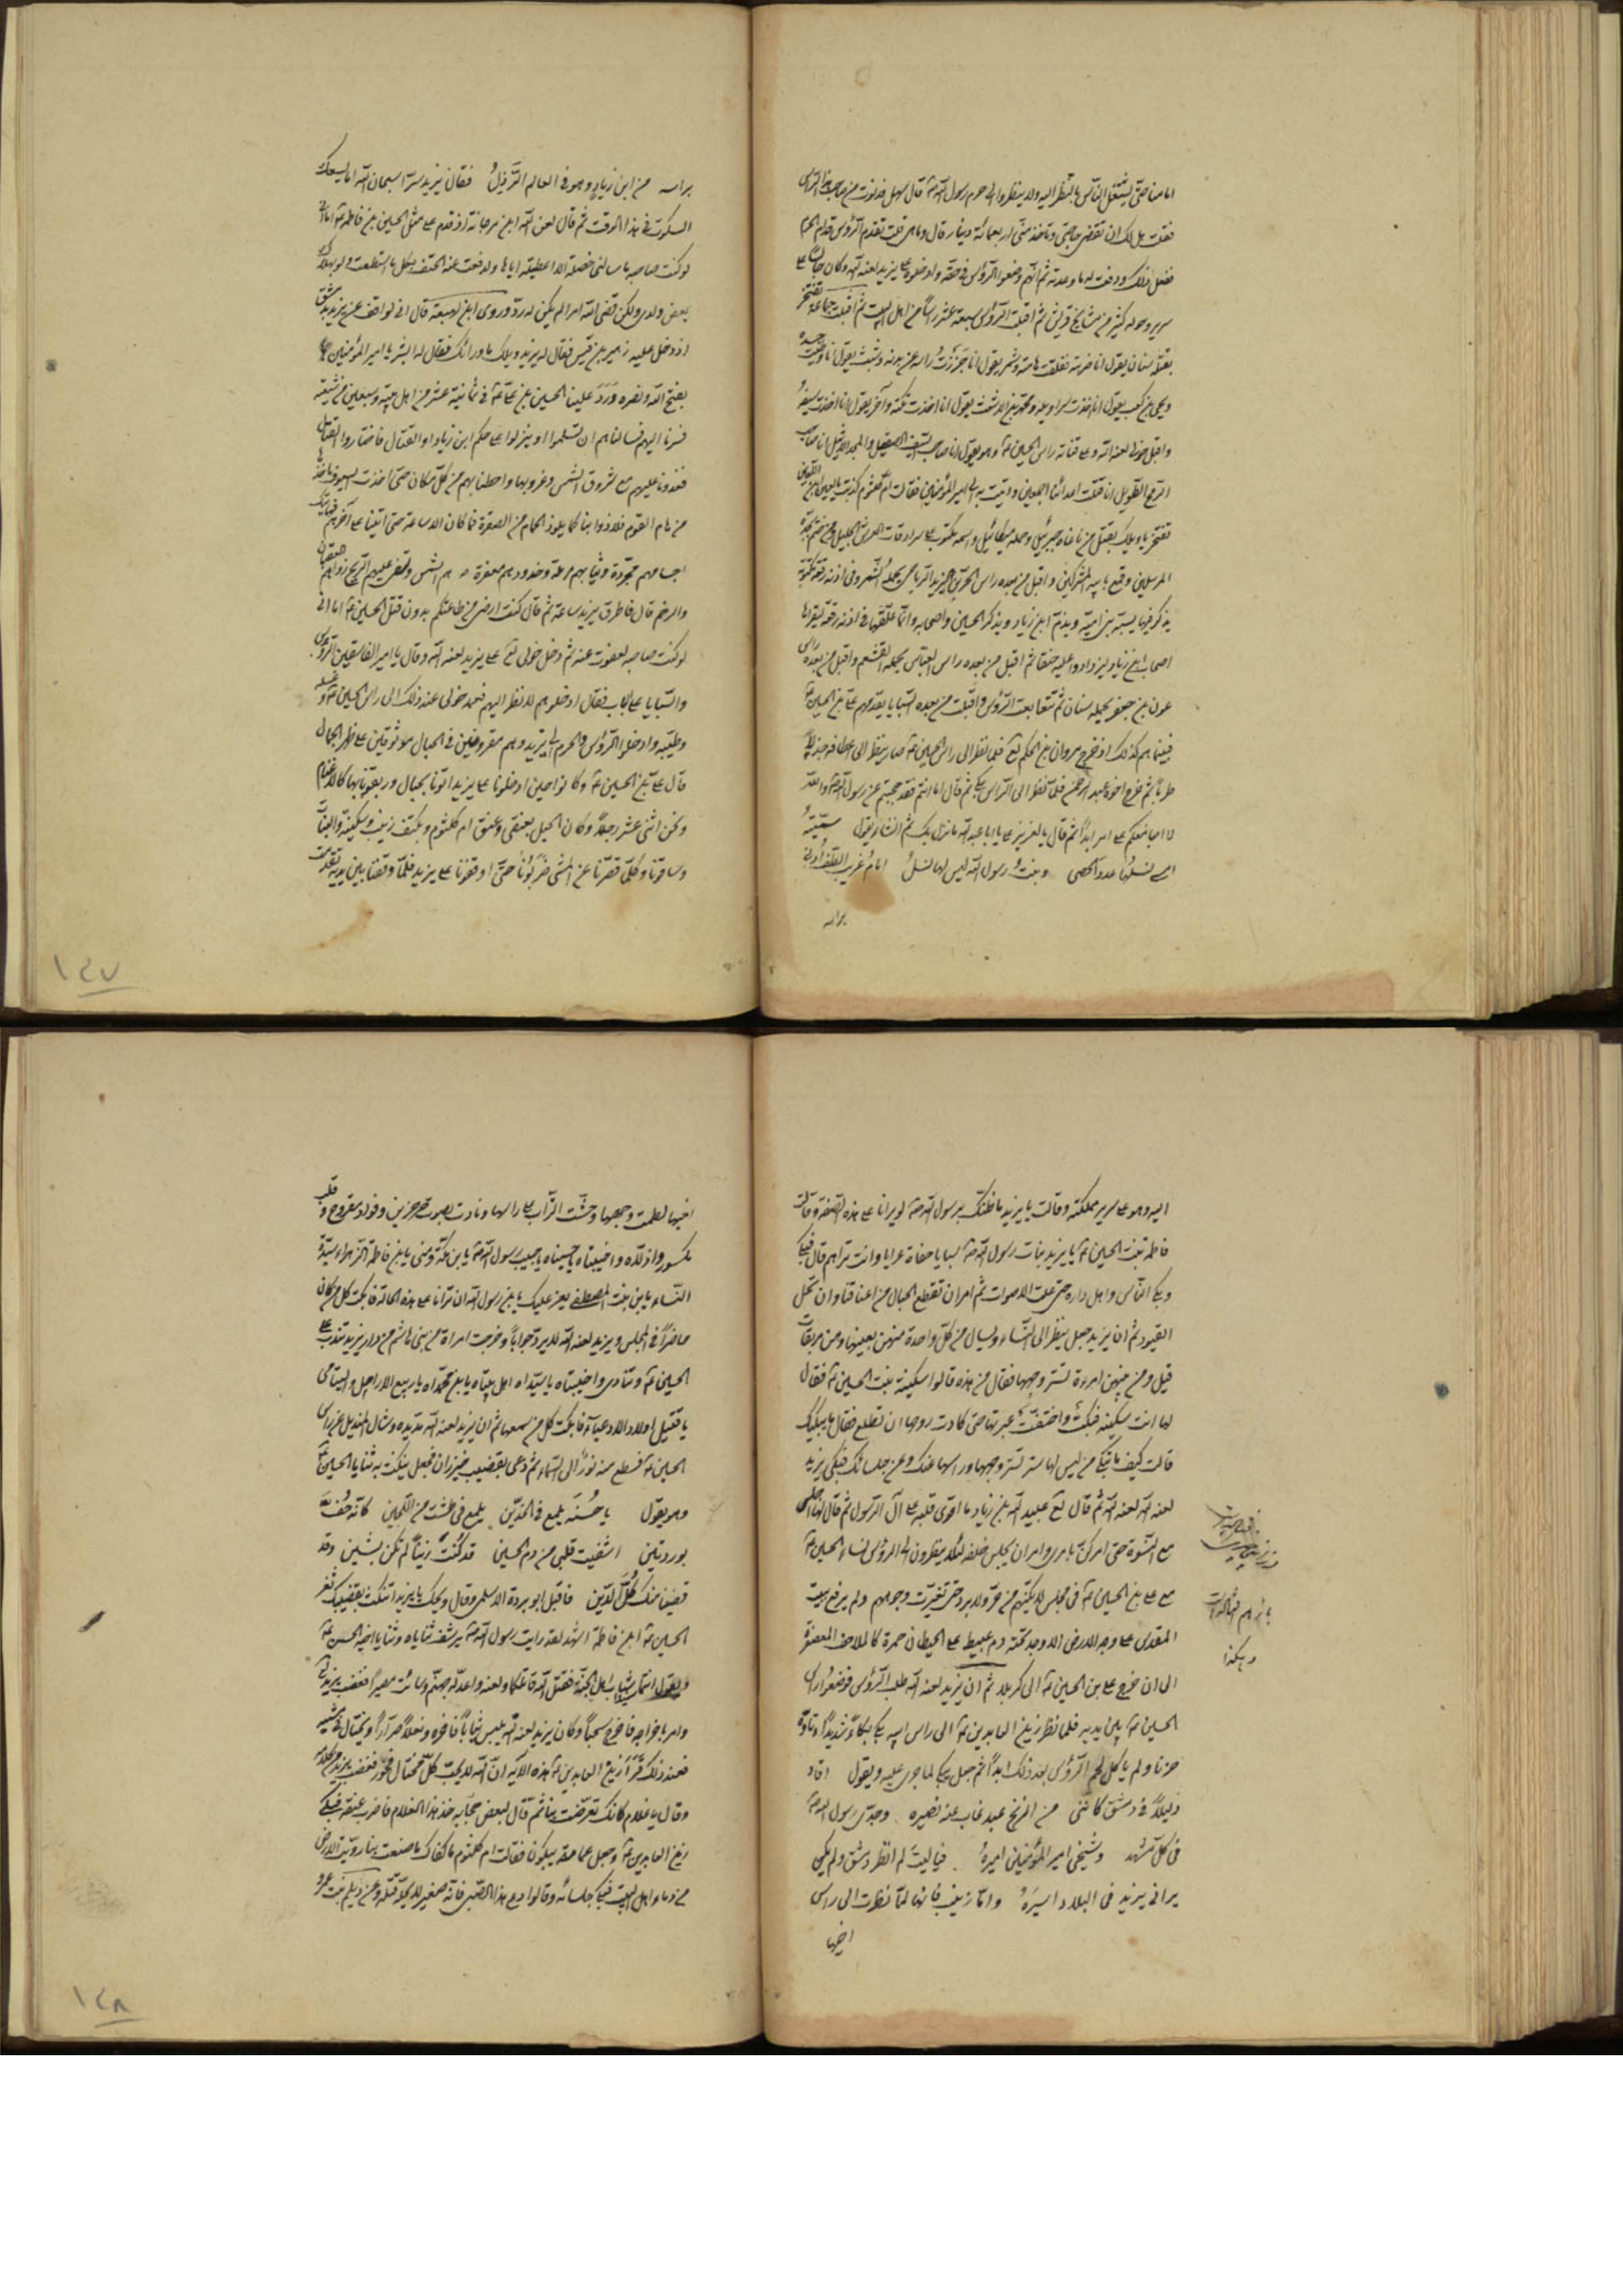 امامنا حتى يشتغل الناس بالنظر اليه ولا ينظروا الى حرم رسول الله ص قال سهل فدنوت من صاحب الراس
فقلت هل لك ان تقضى حاجتى وتاخذ منى اربعمائة دينار قال وما هى قلت تقدم الرؤس قدام الحرم
ففعل ذلك ودفعت له ما وعدته ثم انهم وضعوا الرؤس فى حقة وادخلوه على يزيد لعنه الله وكان جالسا على
سرير وحوله كثير من مشايخ قريش ثم اقبلت الرؤس سبعة عشر راسا من اهل البيت ثم اقبلت جماعة تفتخر
بقتله سنان يقول انا ضربته ففلقت هامته وشمر يقول انا جززت راسه عن بدنه وشبث يقول انا
ويحى بن كعب يقول انا اخذت سراويله ومحمد بن الاشعث يقول انا اخذت تكته وآخر يقول انا اخذت سيفه
واقبل خولى لعنه الله وعلى قناته راس الحسين ع وهو يقول انا صاحب السيف الصيقل والمجد الاثيل انا صاحب
الرمح الطويل انا قتلت اعدائنا اجمعين واتيت به الى امير المؤمنين فقالت ام كلثوم كذبت يا لعين ابن اللعين
تفتخر يا ويلك بقتل من ناغاه جبرئيل وحمله ميكائيل واسمه مكتوب على سرادقات العرش الجليل ومن ختم بجده
المرسلين وقمع بابيه المشركين واقبل من بعده راس الحر بن يزيد الرياحى يحمله الشمر وفى اذنه رقعة مكتوبة
يذكر فيها يسبه بنى امية ويذم ابن زياد ويذكر الحسين واصحابه وانما علقها فى اذنه رقعة ليقرئها
اصحاب ابن زياد ليزدادوا عليه حنقا ثم اقبل من بعده راس العباس يحمله القشعم واقبل من بعده راس
عون بن جعفر يحمله سنان ثم تتابعت الرؤس واقبلت من بعده السبايا يقدمهم على بن الحسين ع
فبينما هم كذلك اذ خرج مروان بن الحكم لع فلما نظر الى راس الحسين ع صار ينظر الى اعطافه جذلا
طربا ثم خرج اخوه عبد الرحمن فلما نظر الى الراس بكى ثم قال اما انتم فقد حجبتم عن رسول الله ص والله
لا اجامعكم على امر ابدا ثم قال بالعزيز على يا ابا عبد الله ما نزل بك ثم انشا يقول سمية
امسى نسلها عدد الحصى وبنت رسول الله ليس لها نسل امام غريب الطف ادنى
براسه
براسه من ابن زياد وهو فى العالم الرذل فقال يزيد سرا سبحان الله اما يسعك
السكوت فى هذا الوقت ثم قال لعن الله ابن مرجانة اذ قدم على مثل الحسين بن فاطمة ع اما انى
لو كنت صاحبه ما سالنى خصلة الا اعطيته اياها ولدفعت عنه الحتف بكل ما استطعت ولو بهلاك
بعض ولدى ولكن قضى الله امرا لم يكن له رد وروى ابن ربيعة قال انى لواقف عند يزيد بدمشق
اذ دخل عليه زهير بن قيس فقال له يزيد ويلك ما ورائك فقال له ابشر يا امير المؤمنين
بفتح الله ونصره ورد علينا الحسين بن على ع فى ثمانية عشر من اهل بيته وسبعين من شيعته
فسرنا اليهم فسالناهم ان تسلموا او ينزلوا على حكم ابن زياد او القتال فاختاروا القتال
فغدونا عليهم مع شروق الشمس وغروبها واحطنا بهم من كل مكان حتى اخذت السيوف ماخذها
من هام القوم فلاذوا بنا كما يلوذ الحمام من الصقرة فما كان الا ساعة حتى اتينا على آخرهم فهاتيك
اجسامهم مجردة وثيابهم مرملة وخدودهم معفرة تصهرهم الشمس وتسفى عليهم الريح زوارهم العقبان
والرخم قال فاطرق يزيد ساعة ثم قال كنت ارضى من طاعتكم بدون قتل الحسين ع اما انى
لو كنت صاحبه لعفوت عنه ثم دخل خولى لع على يزيد لعنه الله وقال يا امير الفاسقين الرؤس
والسبايا على الباب فقال ادخلوهم لانظر اليهم فعمد خولى عند ذلك الى راس الحسين ع وغسله
وطيبه وادخلوا الرؤس والحرم الى يزيد وهم مقرونين فى الحبال موثوقين على ظهر الجمال
قال على بن الحسين ع وكانوا حين ادخلونا على يزيد اتونا بحبال وربقونا بها كالاغنام
ونحن اثنى عشر رجلا وكان الحبل بعنقى وعنق ام كلثوم وبكتف زينب وسكينة والبنات
وساقونا وكلما قصرنا عن المشى ضربونا حتى اوقفونا على يزيد فلما وقفنا بين يديه تقدمت
١٤٧
اليه وهو على سرير مملكته وقالت يا يزيد ما ظنك برسول الله ص لو يرانا على هذه الصفة وقالت
فاطمة بنت الحسين ع يا يزيد بنات رسول الله ص سبايا حفاة عرايا وانت تراهم قال فبكى
وبكى الناس واهل داره حتى علت الاصوات ثم امر ان تقطع الحبال من اعناقنا وان تحل
القيود ثم ان يزيد جعل ينظر الى النساء ويسال من كل واحدة منهن بعينها وهن مربقات
قيل ومن بينهن امرءة تستر وجهها فقال من هذه قالوا سكينة بنت الحسين ع فقال
لها انت سكينة فبكت واختنقت بعبرتها حتى كادت روحها ان تطلع فقال ما يبكيك
قالت كيف ما تبكى من ليس لها ستر تستر وجهها وراسها عنك وعن جلسائك فبكى يزيد
لعنه الله لعنه الله ثم قال لع عبيد الله بن زياد ما اقوى قلبه على آل الرسول ثم قال لها اجلسى
مع النسوة حتى امر لك بامرى وامر ان يجلس خلفه لئلا ينظرون الى الرؤس نساء الحسين ع
مع على بن الحسين ع فى مجلس لا يكنهم من حر ولا برد حتى تغيرت وجوههم ولم يرفع ببيت
المقدس على وجه الارض الا وجد تحته دم عبيط على الحيطان حمرة كالملاحف المعصفرة
الى ان خرج على بن الحسين ع الى كربلا ثم ان يزيد لعنه الله طلب الرؤس فوضعوا راس
الحسين ع بين يديه فلما نظر زين العابدين ع الى راس ابيه بكى بكاء شديدا وتاوه
حزنا ولم ياكل لحم الرؤس بعد ذلك ابدا ثم جعل يبكى لما جرى عليه ويقول اقاد
ذليلا فى دمشق كاننى من الزنج عبد غاب عنه نصيره وجدى رسول الله ص
فى كل مشهد وشيخى امير المؤمنين اميره فيا ليت لم انظر دمشق ولم يكن
يرانى يزيد فى البلاد اسيره واما زينب فانها لما نظرت الى راس
اخيها
اخيها لطمت وجهها وحثت التراب على راسها ونادت بصوت حزين وفؤاد مقروح وقلب
مكسور واذلاه واخيبتاه يا حسيناه يا حبيب رسول الله ص يا بن مكة ومنى يا بن فاطمة الزهراء سيدة
النساء يا بن بنت المصطفى يعز عليك يا بن رسول الله ان ترانا على هذه الحالة فابكت كل من كان
حاضرا فى المجلس ويزيد لعنه الله لا يرد جوابا وخرجت امراة من بنى هاشم من دار يزيد تندب على
الحسين ع وتنادى واخيبتاه يا سيداه اهل بيتاه يا بن محمداه يا ربيع الارامل واليتامى
يا قتيل اولاد الادعياء فابكت كل من سمعها ثم ان يزيد لعنه الله مد يده وشال المنديل عن راس
الحسين ع فسطع منه نور الى السماء ثم دعى بقضيب خيزران فجعل ينكت به ثنايا الحسين ع
وهو يقول يا حسنه يلمع فى الخدين يلمع فى طشت من اللجين كانه حف
بوردتين اشفيت قلبى من دم الحسين قد كنت زينا لم تكن بشين وقد
قضينا منك كل الدين فاقبل ابو بردة الاسلمى وقال ويحك يا يزيد اتنكت بقضيبك ثغر
الحسين ع ابن فاطمة اشهد لقد رايت رسول الله ص يرشف ثناياه وثنايا اخيه الحسن ع
ويقول انتما سيدا شباب اهل الجنة فقتل الله قاتلكما ولعنه واعد له جهنم وسائت مصيرا فغضب يزيد لع
وامر باخراجه فاخرج سحبا وكان يزيد لعنه الله يلبس ثيابا فاخرة ونعلا صرارا ويختال فى مشيته
فعند ذلك قرأ زين العابدين ع هذه الآية ان الله لا يحب كل مختال فخور فغضب يزيد من كلامه
وقال يا غلام كانك تعرضت بنا ثم قال لبعض حجابه خذ هذا الغلام فاضرب عنقه فبكى
زين العابدين ع وجعل عماته يبكون فقالت ام كلثوم ما كفاك ما صنعت بنا رويت الارض
من دماء اهل البيت فبكى جلسائه وقالوا دع هذا الصبى فانه صغير لا يحل قتله وعن ديلم بن عمر
١٤٨